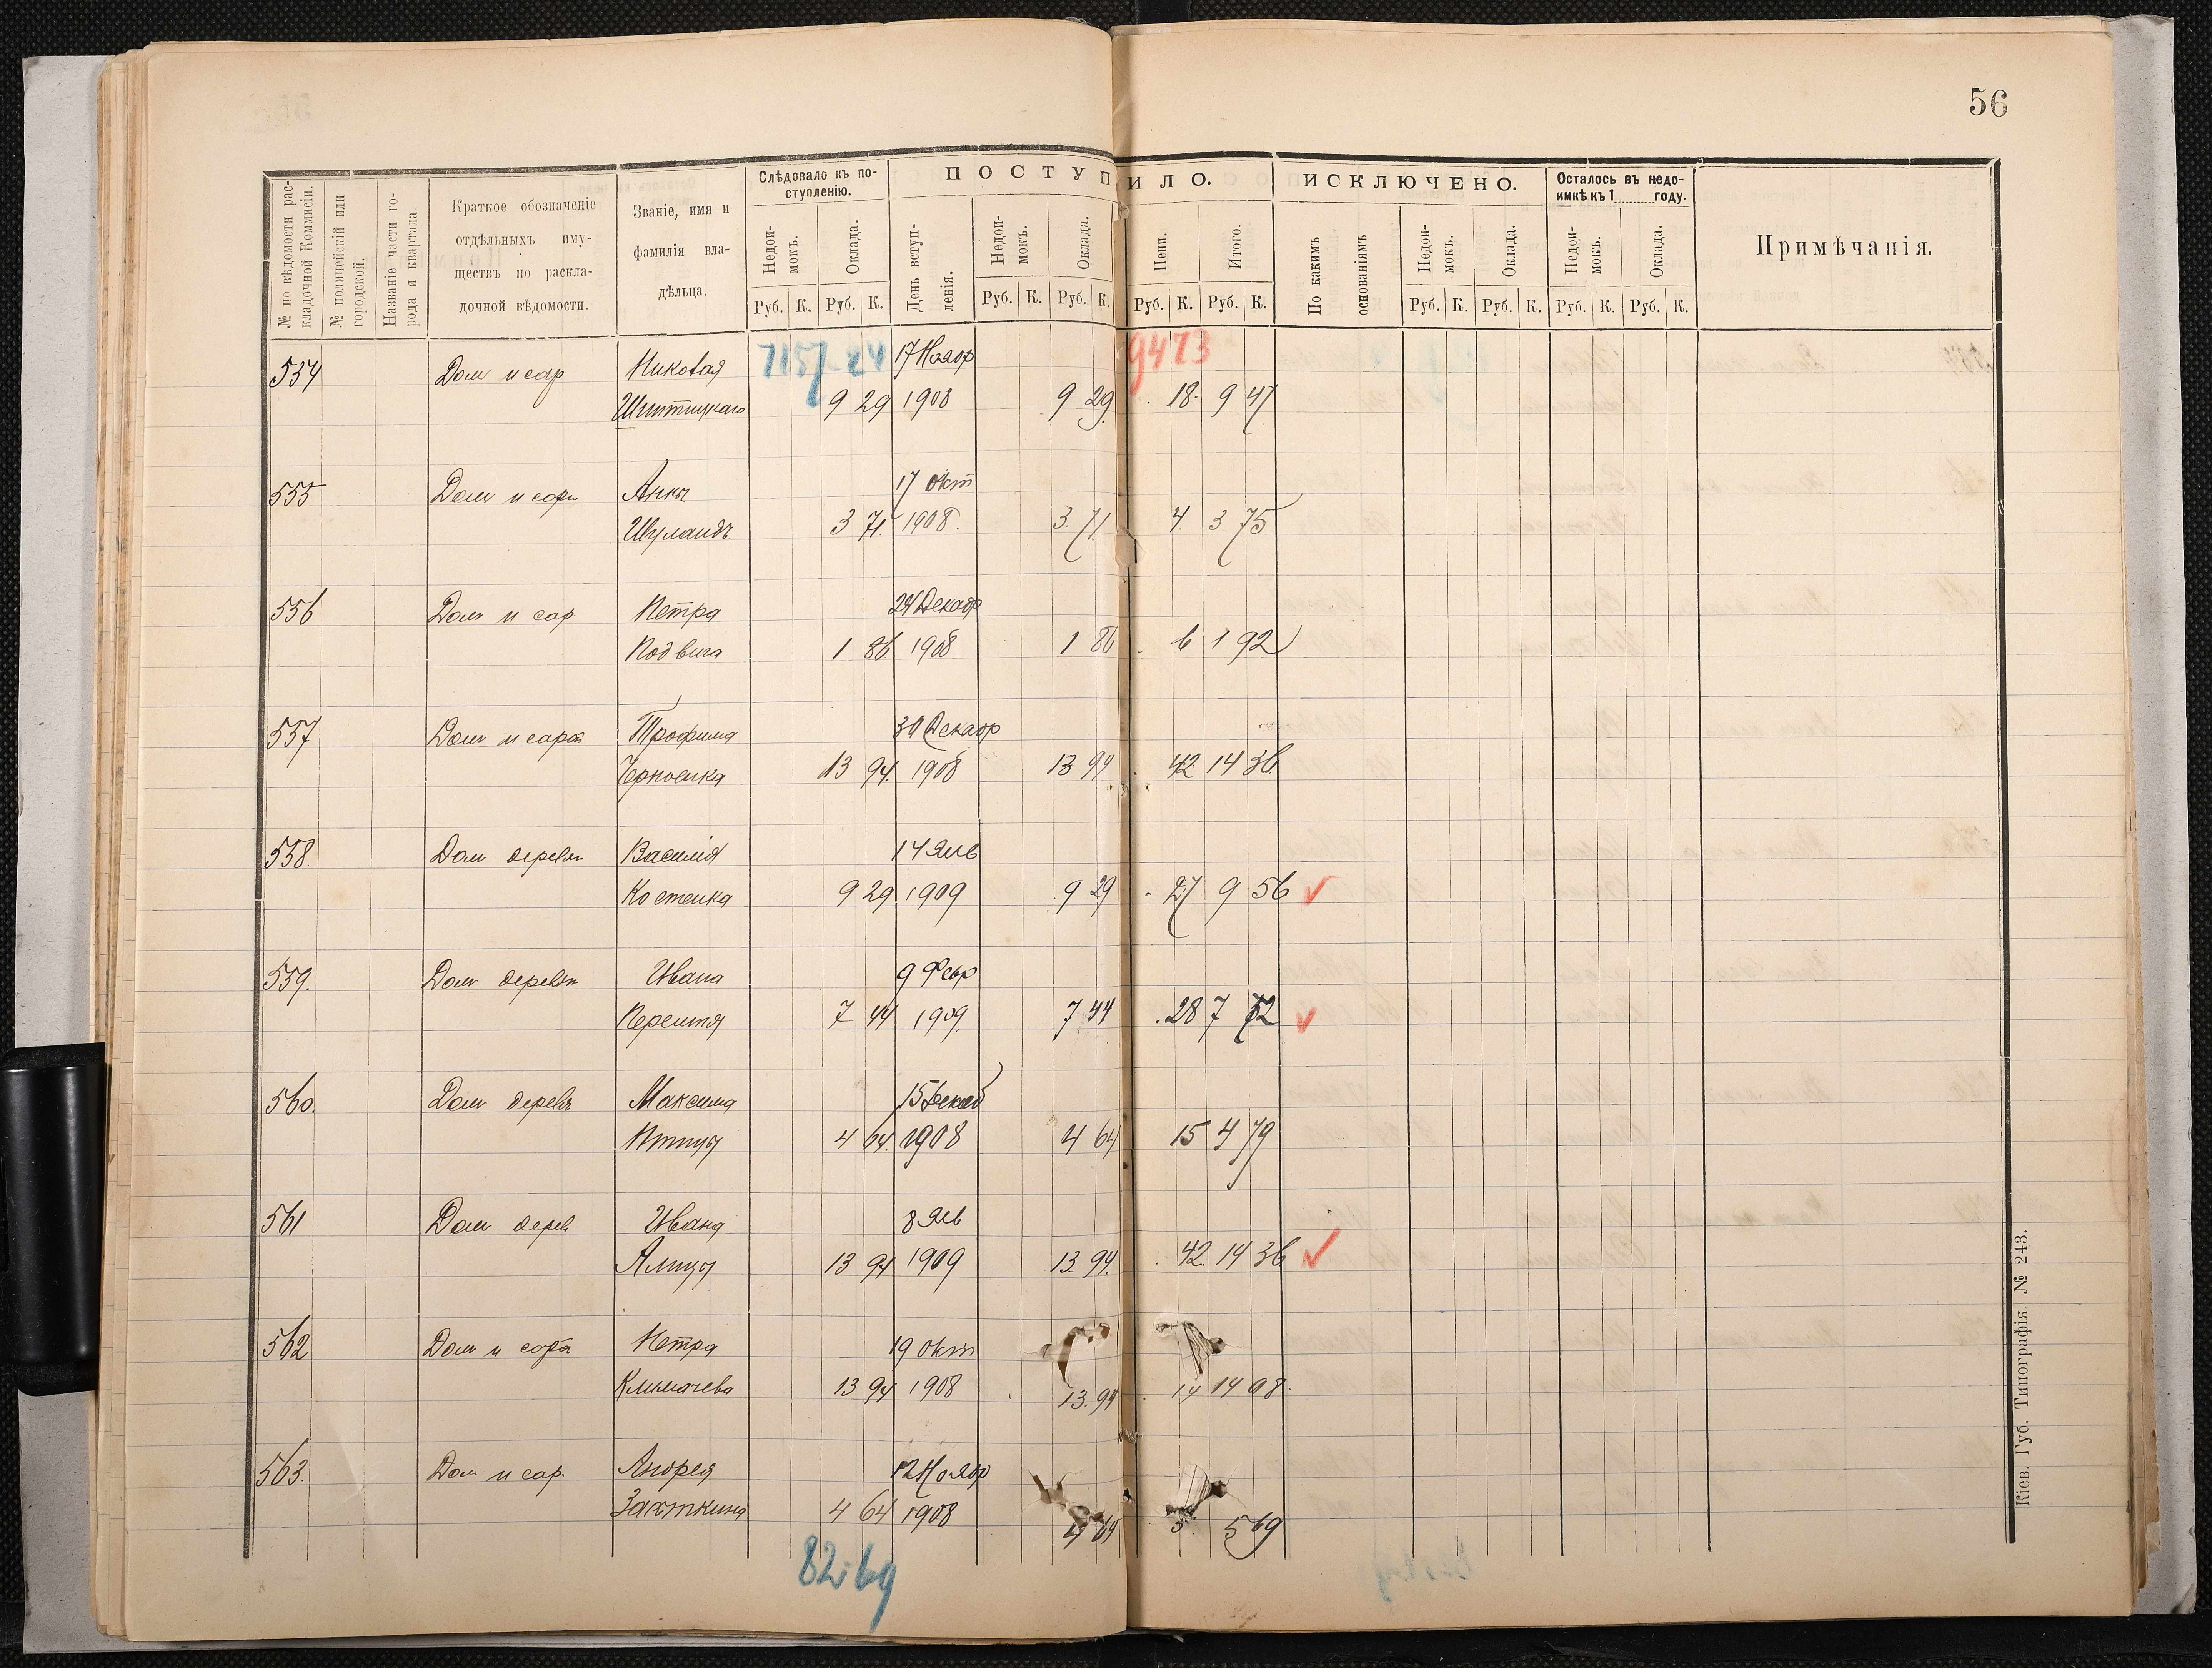 56
№ по вѣдомости рас-
кладочной Коммисіи.
№ полицейскій или
городской.
Названіе части го-
рода и квартала
Краткое обозначеніе
отдѣльныхъ иму-
ществъ по раскла-
дочной вѣдомости.
Званіе, имя и
фамилія вла-
дѣльца.
Слѣдовало къ по-
ступленію.
Недои-
мокъ.
Оклада.
ПОСТУПИЛО.
День вступ-
ленія.
Недои-
мокъ.
Оклада.
Пени.
Итого.
ИСКЛЮЧЕНО.
По какимъ
основаніямъ
Недои-
мокъ.
Оклада.
Осталось въ недо-
имкѣ къ 1 году.
Недои-
мокъ.
Оклада.
Примѣчанія.
Руб. К. Руб. К. Руб. К. Руб. К. Руб. К. Руб. К. Руб. К. Руб. К. Руб. К. Руб. К.
554 Дом и сар Николая 7157-24 17 Нояб 9473
9 29 1908 9 29 18 9 47
555 Дом и сар Анны 17 окт
Шуландъ 3 71 1908. 3.71 4 3 75
556 Дом и сар Петра 24 Декабр
Подвига 1 86 1908 1 86 6 1 92
557 Дом и сара Трофима 30 Декабр
13 94 1908 13 94 42 14 36
558 Дом деревян Василія 14 Янв
Костенка 9 29 1909 9 29 27 9 56
559. Дом деревян Ивана 9 Февр
7 44 1909. 7 44 28 7 72
560. Дом дерев Максима 15 Декаб
Птицы 4 64 1908 4 64 15 4 79
561 Дом дерев Ивана 8 Янв
13 94 1909 13. 94. 42. 14 36
562 Дом и сара Петра 19 окт
Климачева 13 94 1908 13.94 14 14 08
563. Дом и сар. Андрея 12 Нояб
4 64 1908 4 64 5 69
82-69
Кіев. Губ. Типографія. № 243.